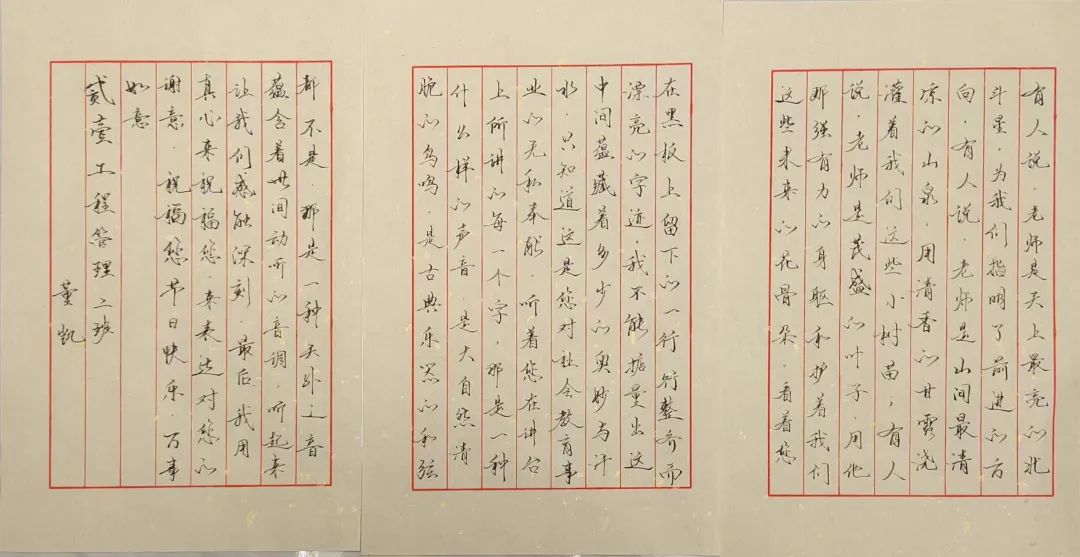 有人说，老师是天上最亮的北
斗星，为我们指明了前进的方
向，有人说，老师是山间最清
凉的山泉，用清香的甘露浇
灌着我们这些小树苗；有人
说，老师是茂盛的叶子，用他
那强有力的身躯和护着我们
这些未来的花骨朵，看着您
在黑板上留下的一行行整齐而
漂亮的字迹，我不能掂量出这
中间蕴藏着多少的奥妙与汗
水，只知道这是您对社会教育事
业的无私奉献，听着您在讲台
上所讲的每一个字，那是一种
什么样的声音，是大自然清
脆的鸟鸣，是古典乐器的和弦
都不是，那是一种天外之音
蕴含着世间动听的音调，听起来
让我们感触深刻，最后我用
真心来祝福您，来表达对您的
谢意，祝福您节日快乐，万事
如意
贰壹工程管理二班
董凯